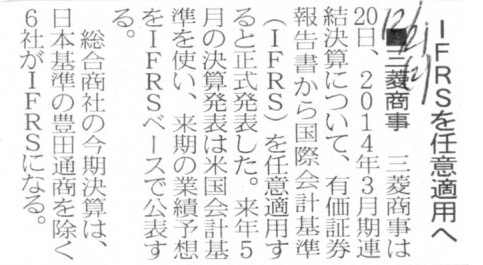 IFRSを任意適用へ
■三菱商事　三菱商事は
20日、2014年3月期連
結決算について、有価証券
報告書から国際会計基準
(IFRS)を任意適用す
ると正式発表した。来年5
月の決算発表は米国会計基
準を使い、来期の業績予想
をIFRSベースで公表す
る。
総合商社の今期決算は、
日本基準の豊田通商を除く
6社がIFRSになる。